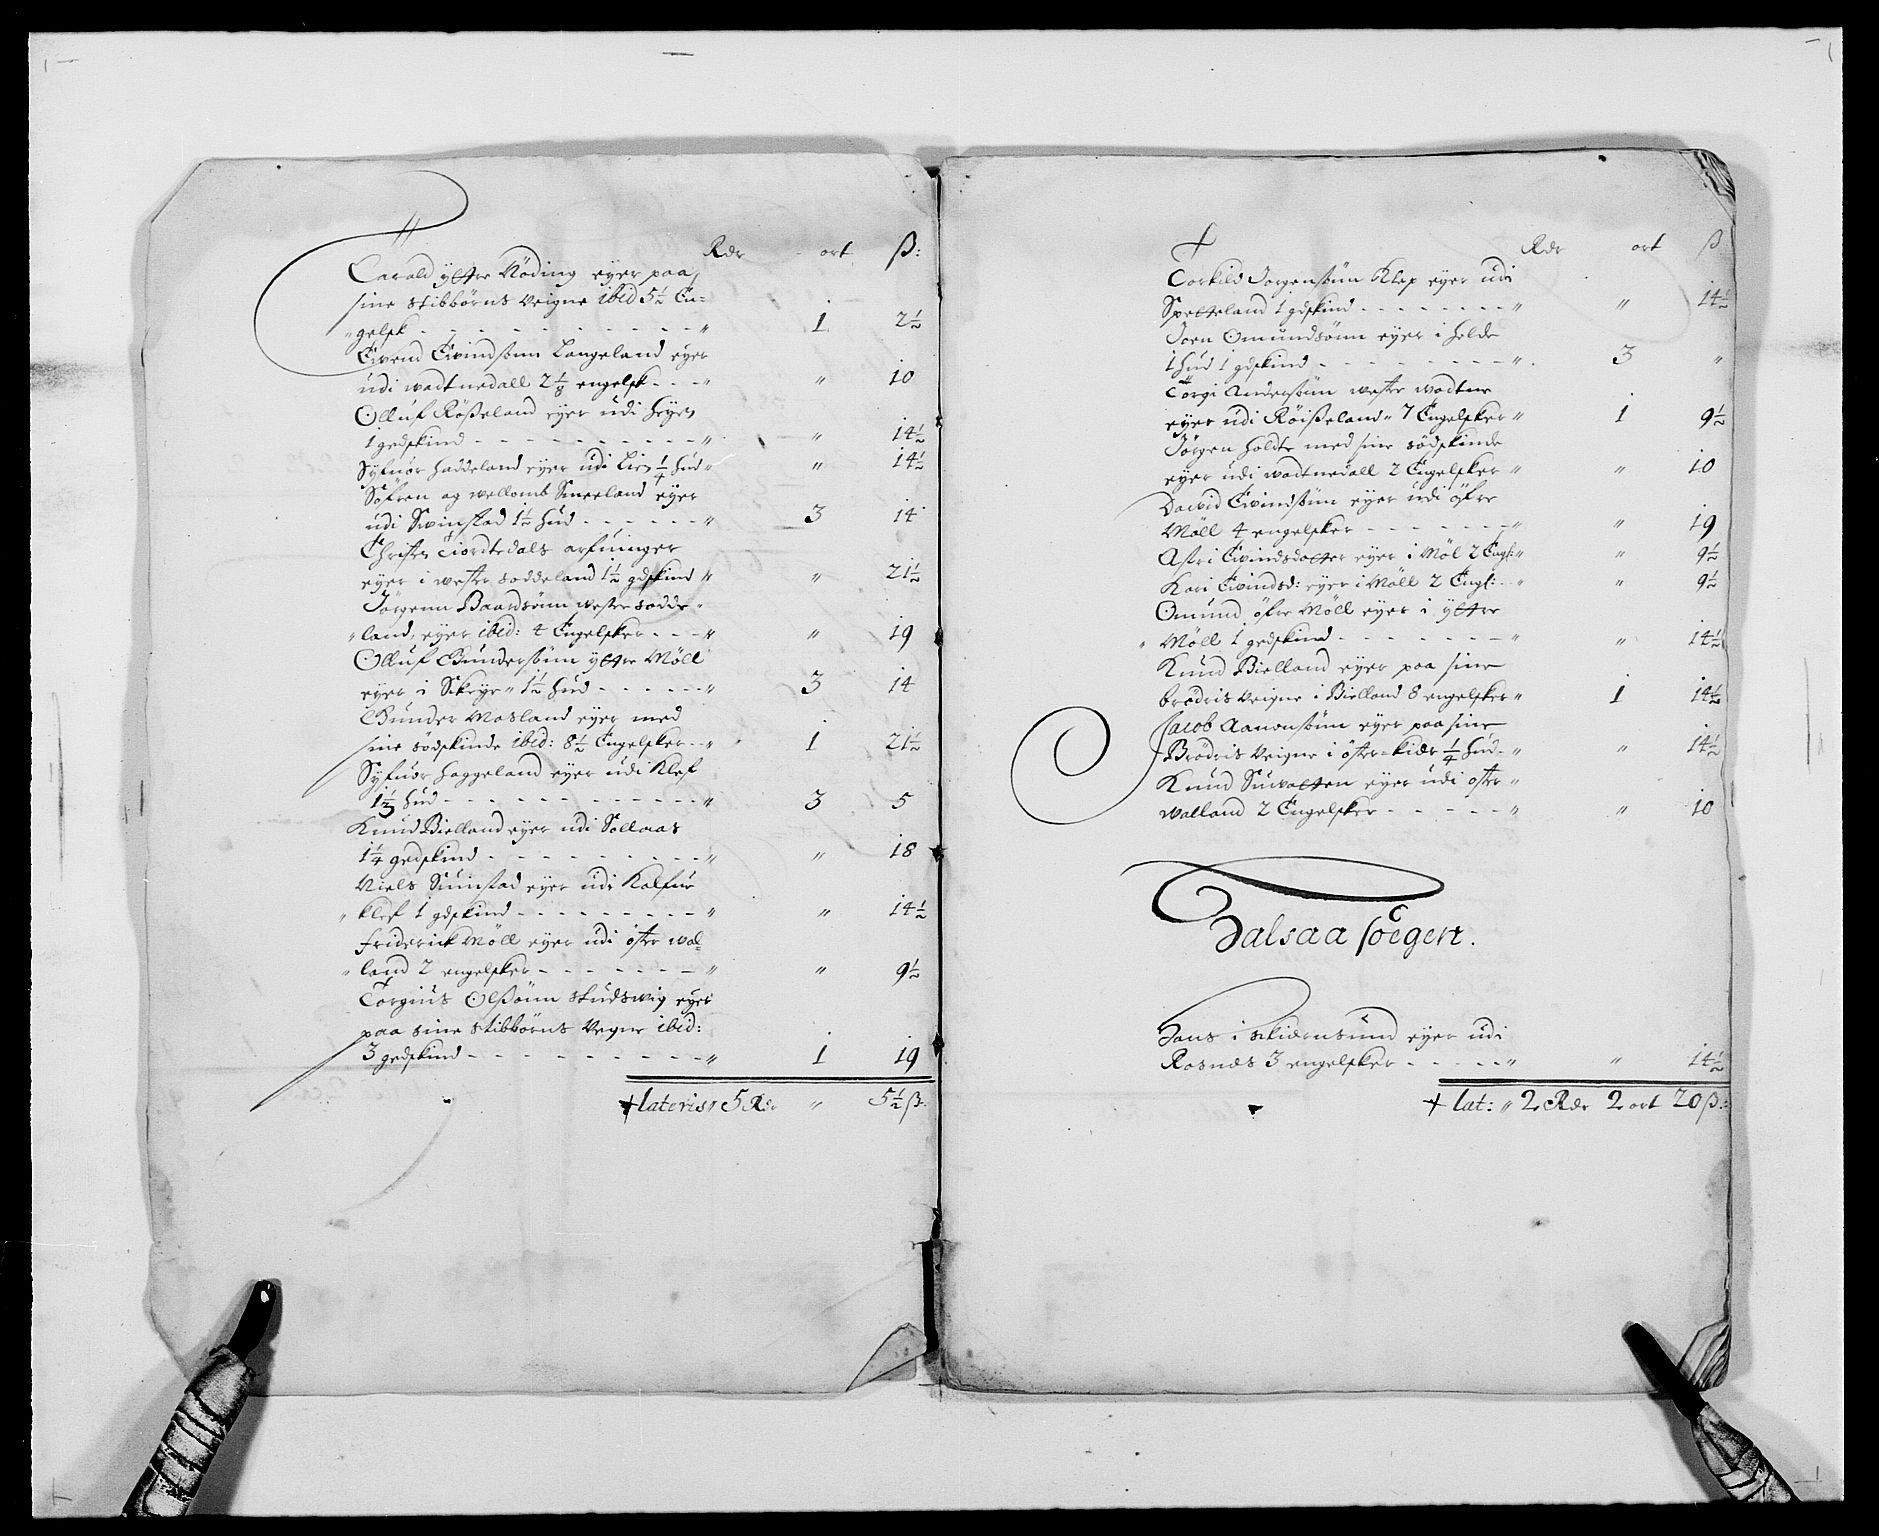 Rdr ort ß:
Carald ÿttre Nöding eyer paa
sine stibbörns Veigne ibid 5½ En-
gelsk - - - " 1 2½
Eivend Eivindsönn Langeland eyer
udi wadtnedall 2⅛ engelsk - - " " 10
Olluf Rößeland eyer udi Heyen
1 gedskind - - - " " 14½
Syfuor Haddeland eyer udi Lien ¼ Hud " " 14½
Söfren og wellomb Sneeland eyer
udi Swinstad 1½ Hud - - - " 3 14
Christen Tiordtedals arfuinger
eyer i wester soddeland 1½ gdskind " " 21½
Jörgenn Baardsönn wester sodde-
land, eyer ibid: 4 Engelsker - - " " 19
Olluf Gundersönn ÿttre Möll
eyer i Skeye " 1½ Hud - - - " 3 14
Gunder Mosland eyer med
sine södskinde ibid: 8½ Engelsker - " 1 21½
Syfuor Haggeland eyer udi Klef
1⅓ Hud - - - " 3 5
Knud Bielland eyer udi Sollaas
1¼ gedskind - - - " " 18
Niels Suinstad eyer udi Kalfue
klef 1 gdskind - - - " " 14½
Friderick Möll eyer udi öster wal-
land 2 engelsker - - - " " 9½
Torgius Olßönn studswig eyer
paa sine stibbörns Vegne ibid:
3 gedskind - - - " 1 19
lateris 5 Rdr " 5½ ß:
Rdr ort ß
Torkild Jorgensönn Klep eyer udi
Spetteland 1 gdskind - - - " " 14½
Joen Omundsönn eyer i Holde
1 Hud 1 gdskind - - - " 3 "
Torgi Andersönn westre wadtne
eyer udi Röißeland " 7 Engelsker " 1 9½
Jörgen Holdte med sine södskinde
eyer udi wadtnedall 2 Engelsker " " 10
David Eivindsönn eyer udi öfre
Möll 4 engelsker - - - " " 19
Astri Eivindsdotter eyer i Möl 2 Engl: " " 9½
Kari Eivindsd: eyer i Möll 2 Engl: - " " 9½
Omund öfre Möll eyer i ÿttre
Möll 1 gedskind - - - " " 14½
Knud Bielland eyer paa sine
brödris Veigne i Bielland 8 engelsker " 1 14½
Jacob Aanonsönn eyer paa sine
Brödris Veigne i öster-kier ¼ Hud - " " 14½
Knud Suwatten eyer udi öster
walland 2 Engelsker - - - " " 10
Halsaa Soegen.
Jens i skiernsund eyer udi
Rosnæs 3 engelsker - - - " " 14½
lat: " 2 Rdr 2 ort 20 ß: